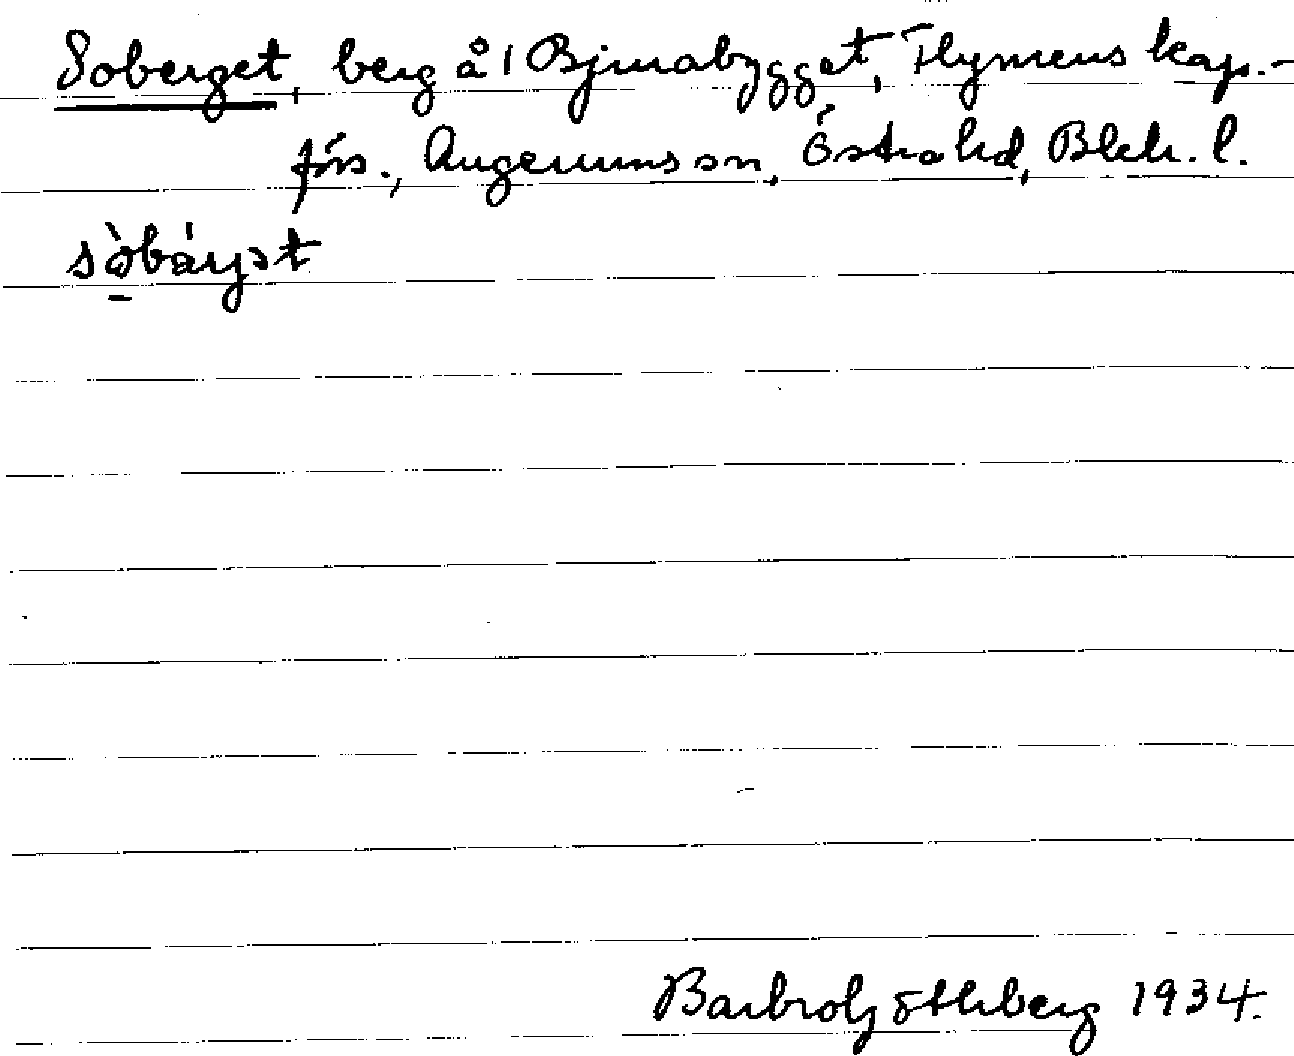 Soberget, berg å 1 Björnabygget, Flymens kap.-
förs., Augerums sn, Östra hd, Blek. l.
sòbárjət
Barbro Göthberg 1934.